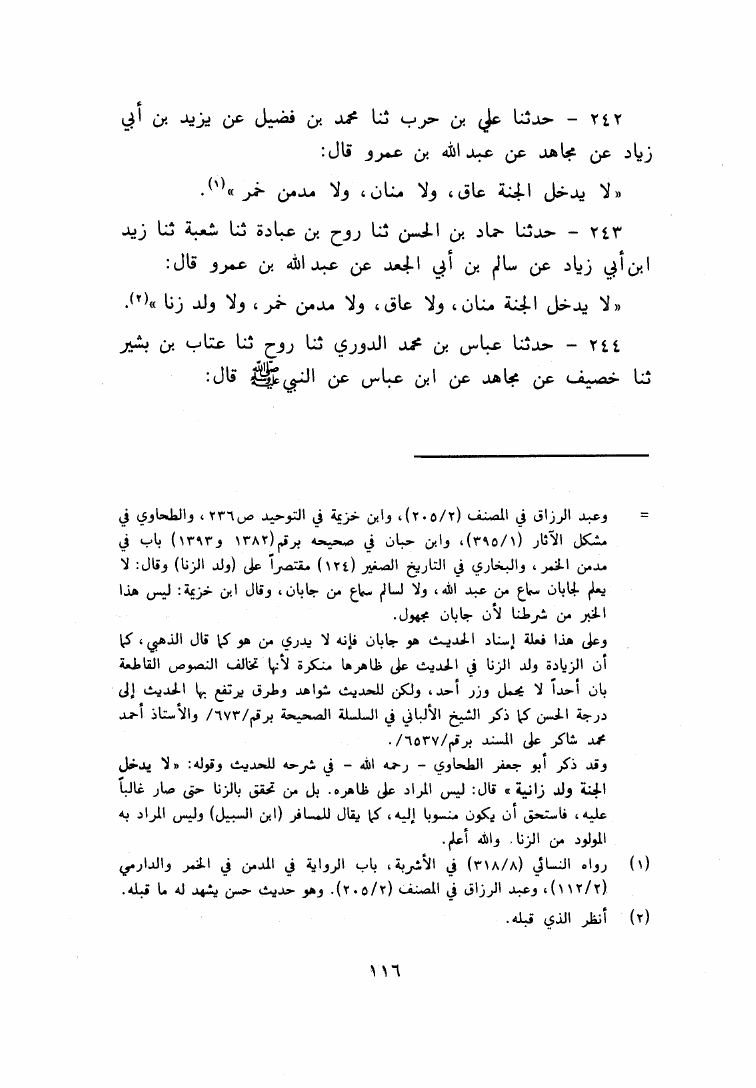 ٢٤٢ - حدثنا علي بن حرب ثنا محمد بن فضيل عن يزيد بن أبي
زياد عن مجاهد عن عبد الله بن عمرو قال:
«لا يدخل الجنة عاق، ولا منان، ولا مدمن خمر»(١).
٢٤٣ - حدثنا حماد بن الحسن ثنا روح بن عبادة ثنا شعبة ثنا زيد
ابن أبي زياد عن سالم بن أبي الجعد عن عبد الله بن عمرو قال:
«لا يدخل الجنة منان، ولا عاق، ولا مدمن خمر، ولا ولد زنا»(٢).
٢٤٤ - حدثنا عباس بن محمد الدوري ثنا روح ثنا عتاب بن بشير
ثنا خصيف عن مجاهد عن ابن عباس عن النبي ﷺ قال:
= وعبد الرزاق في المصنف (٢٠٥/٢)، وابن خزيمة في التوحيد ص٢٣٦، والطحاوي في
مشكل الآثار (٣٩٥/١)، وابن حبان في صحيحه برقم(١٣٨٢ و١٣٩٣) باب في
مدمن الخمر، والبخاري في التاريخ الصغير (١٢٤) مقتصراً على (ولد الزنا) وقال: لا
يعلم لجابان سماع من عبد الله، ولا لسالم سماع من جابان، وقال ابن خزيمة: ليس هذا
الخبر من شرطنا لأن جابان مجهول.
وعلى هذا فعلة إسناد الحديث هو جابان فإنه لا يدري من هو كما قال الذهبي، كما
أن الزيادة ولد الزنا في الحديث على ظاهرها منكرة لأنها تخالف النصوص القاطعة
بان أحداً لا يحمل وزر أحد، ولكن للحديث شواهد وطرق يرتفع بها الحديث إلى
درجة الحسن كما ذكر الشيخ الألباني في السلسلة الصحيحة برقم/٦٧٣/ والأستاذ أحمد
محمد شاكر على المسند برقم/٦٥٣٧/.
وقد ذكر أبو جعفر الطحاوي - رحمه الله - في شرحه للحديث وقوله: «لا يدخل
الجنة ولد زانية» قال: ليس المراد على ظاهره. بل من تحقق بالزنا حتى صار غالباً
عليه، فاستحق أن يكون منسوبا إليه، كما يقال للمسافر (ابن السبيل) وليس المراد به
المولود من الزنا. والله أعلم.
(١) رواه النسائي (٣١٨/٨) في الأشربة، باب الرواية في المدمن في الخمر والدارمي
(١١٢/٢)، وعبد الرزاق في المصنف (٢٠٥/٢). وهو حديث حسن يشهد له ما قبله.
(٢) أنظر الذي قبله.
١١٦